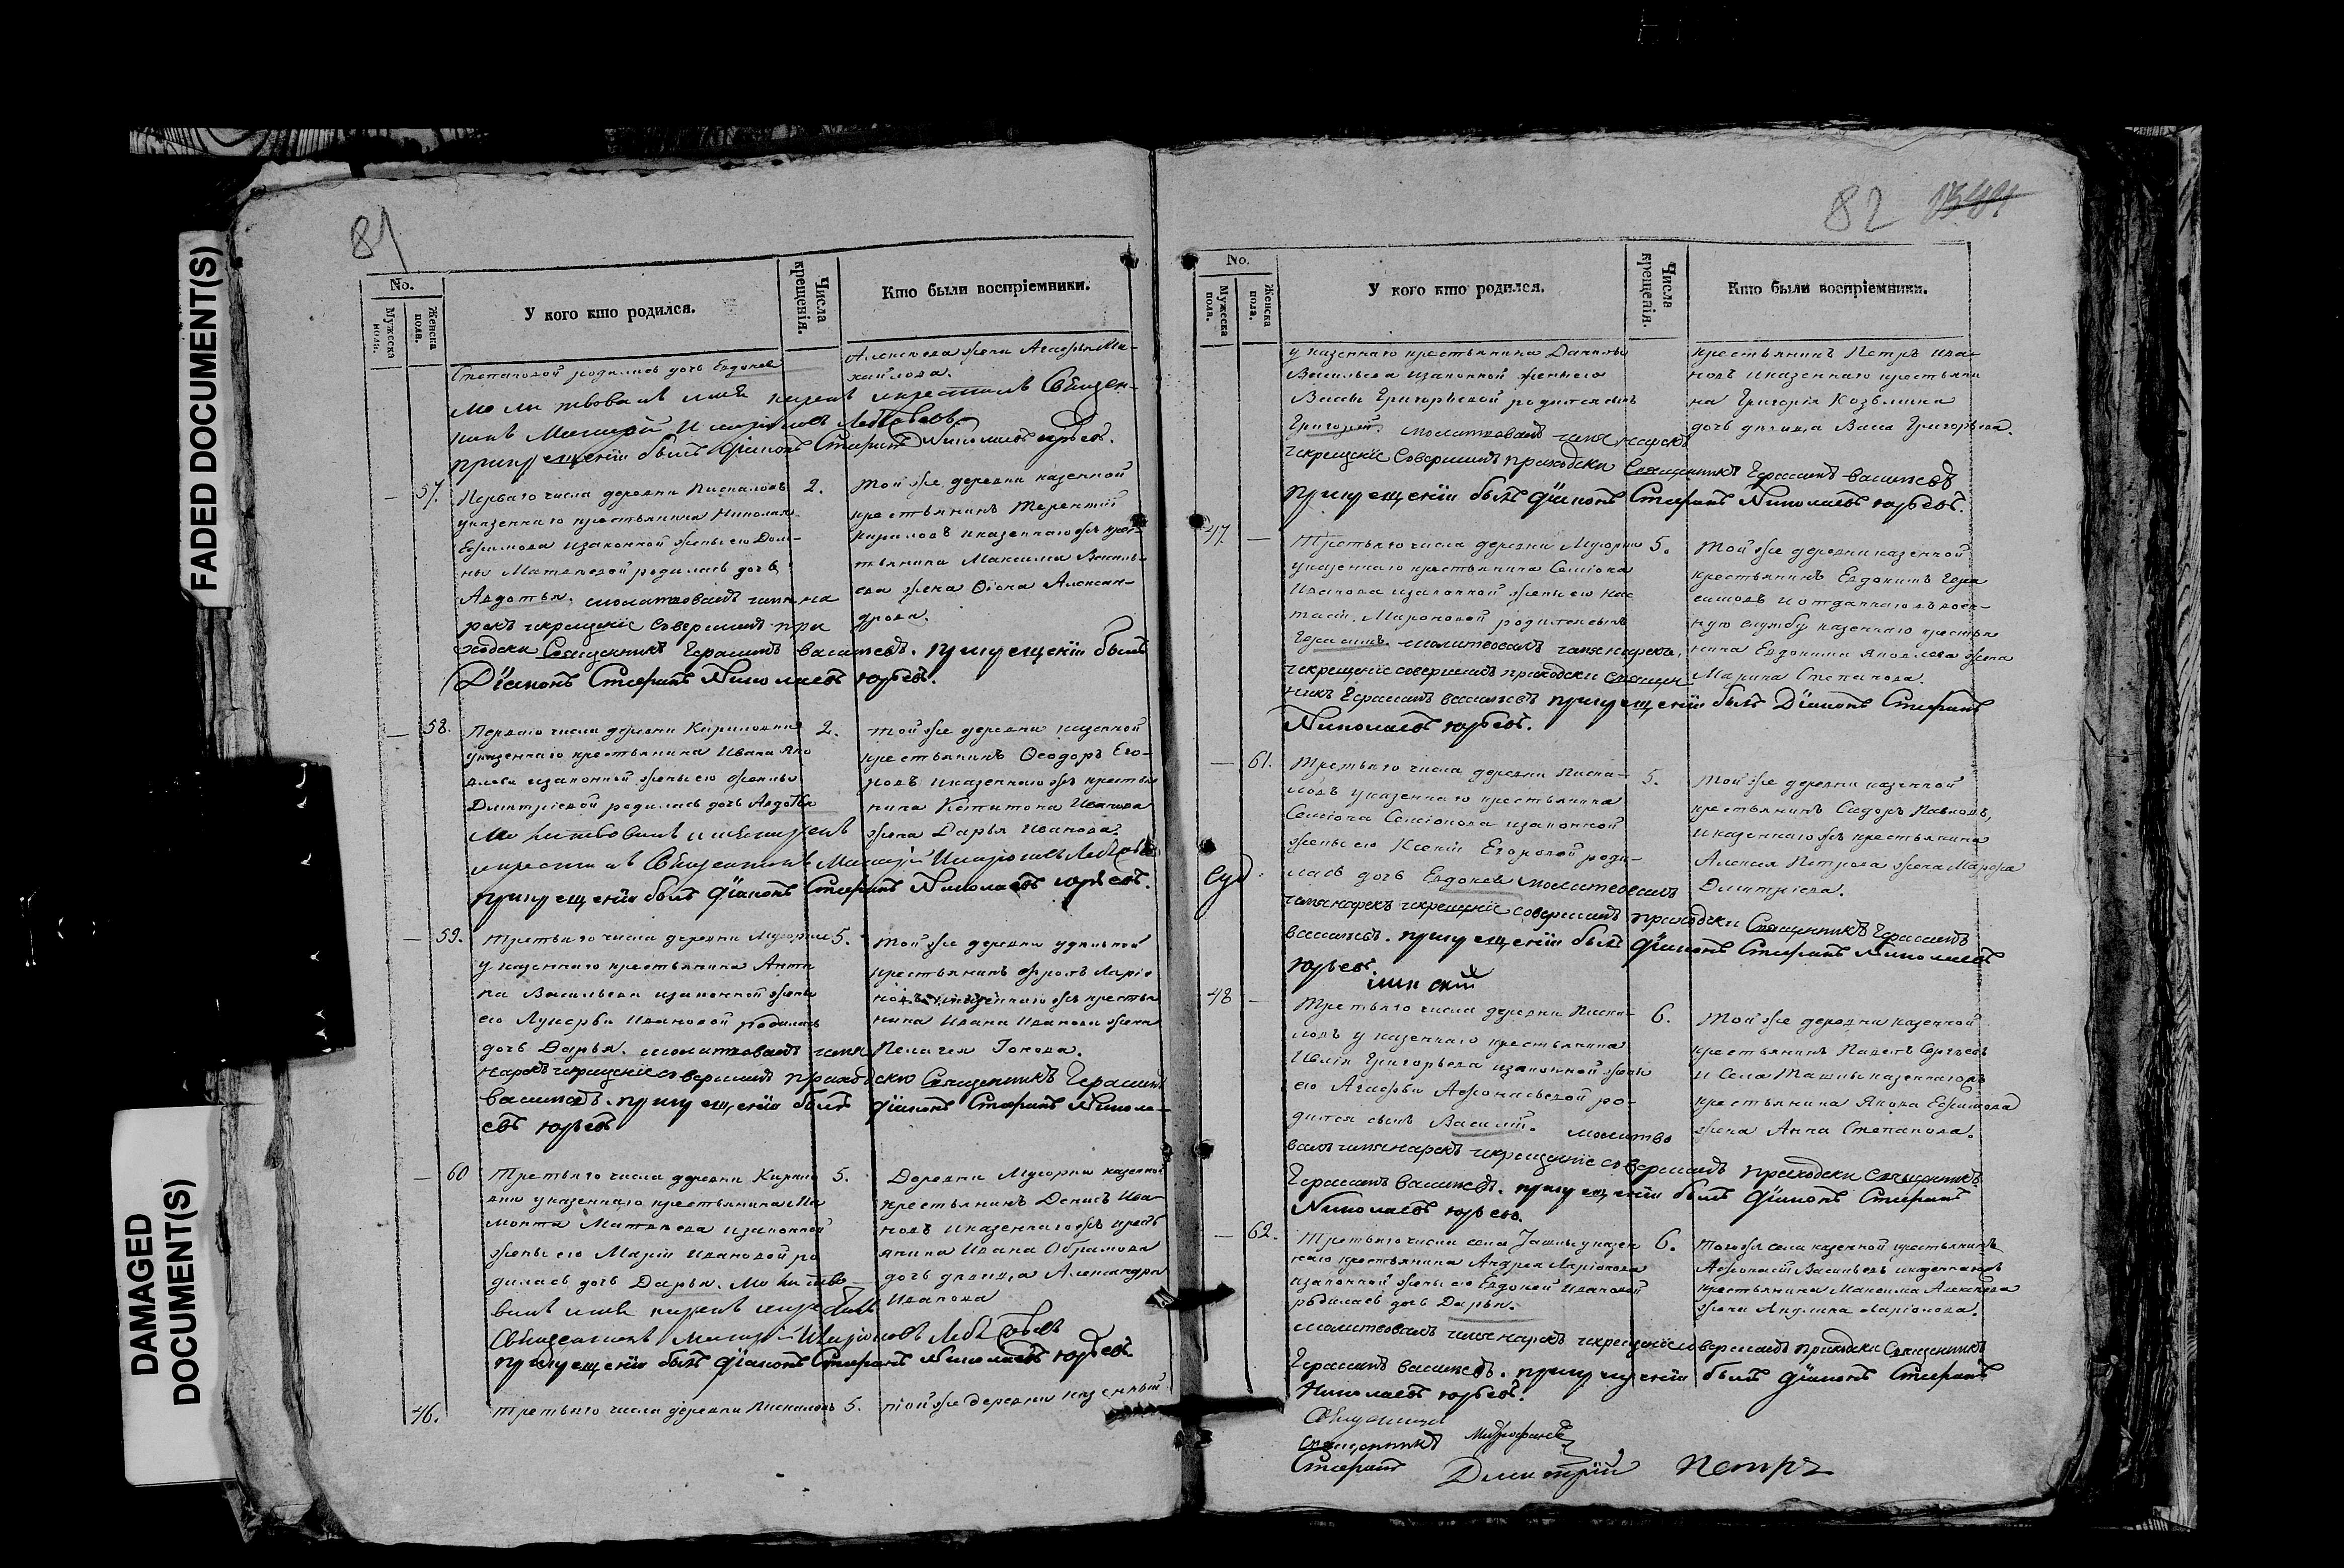 FADED DOCUMENT(S)
DAMAGED
DOCUMENT(S)
81
No.
Мужеска пола.
Женска пола.
У кого кто родился.
Числа крещенія.
Кто были воспріемники.
Степановой родилась дочь Евдокея
молитвовалъ имя нарекъ и крестилъ Священ-
никъ
при крещеніи былъ Діаконъ Стефанъ Николаевъ Юрьевъ.
Алексѣева жена Агафья Ми-
хайлова.
57.
Перваго числа деревни Пискаловъ
у казеннаго крестьянина Николая
Ефимова и законной жены его Дом-
ны Матвѣевой родилась дочь
Авдотья. молитвовалъ имя на
рекъ и крещеніе совершилъ при
ходски Священникъ Герасимъ Васильевъ. при крещеніи былъ
Діаконъ Стефанъ Николаевъ Юрьевъ.
2.
той же деревни казенной
крестьянинъ Терентій
Кириловъ и казеннаго жъ крес-
тьянина Максима Василь-
ева жена Ѳіона Алексан-
дрова.
58.
Перваго числа деревни
у казеннаго крестьянина Ивана Яко
влева и законной жены его
Дмитріевой родилась дочь Авдотья
молитвовалъ имя нарекъ
и крестилъ Священникъ
при крещеніи былъ Діаконъ Стефанъ Николаевъ Юрьевъ.
2.
той же деревни казенной
крестьянинъ Ѳеодоръ Его-
ровъ и казеннаго жъ крестья
нина Капитона Иванова
жена Дарья Иванова.
59.
Третьяго числа деревни
у казеннаго крестьянина Анти
па Васильева и законной жены
его Лукерьи Ивановой родилась
дочь Дарья. молитвовалъ имя
нарекъ и крещеніе совершилъ приходски Священникъ Герасимъ
Васильевъ. при крещеніи былъ Діаконъ Стефанъ Никола-
евъ Юрьевъ
5.
той же деревни удѣльной
крестьянинъ Фролъ Ларіо
новъ и казеннаго жъ крестья
нина Ивана Иванова жена
Пелагея Іонова.
60
Третьяго числа деревни
у казеннаго крестьянина Ма
монта Матвѣева и законной
жены его Маріи Ивановой ро
дилась дочь Дарья. молитво-
валъ имя нарекъ и крестилъ
Священникъ
при крещеніи былъ Діаконъ Стефанъ Николаевъ Юрьевъ.
5.
Деревни казенной
крестьянинъ Денисъ Ива
новъ и казеннаго жъ кресть
янина Ивана Обрамова
дочь дѣвица Александра
Иванова
46.
Третьяго числа деревни Пискаловъ
5.
той же деревни казенный
82
No.
Мужеска пола.
Женска пола.
У кого кто родился.
Числа крещенія.
Кто были воспріемники.
у казеннаго крестьянина Данилы
Васильева и законной жены его
Васы Григорьевой родился сынъ
Григорій. молитвовалъ имя нарекъ
и крещеніе совершилъ приходски Священникъ Герасимъ Васильевъ
при крещеніи былъ Діаконъ Стефанъ Николаевъ Юрьевъ.
крестьянинъ Петръ Ива-
новъ и казеннаго крестьяни
на Григорія Козьмина
дочь дѣвица Васа Григорьева.
47.
Третьяго числа деревни
у казеннаго крестьянина Семіона
Иванова и законной жены его Нас
тасіи Мироновой родился сынъ
Герасимъ. молитвовалъ имя нарекъ,
и крещеніе совершилъ приходски Священ
никъ Герасимъ Васильевъ при крещеніи былъ Діаконъ Стефанъ
Николаевъ Юрьевъ.
5.
той же деревни казенной
крестьянинъ Евдокимъ Гера
симовъ и отданнаго въ воен-
ную службу казеннаго крестья
нина Евдокима Яковлева жена
Марина Степанова.
61.
Третьяго числа деревни Писка-
ловъ у казеннаго крестьянина
Семіона Семіонова и законной
жены его Ксеніи Егоровой роди-
лась дочь Евдокея молитвовалъ
имя нарекъ и крещеніе совершилъ приходски Священникъ Герасимъ
Васильевъ. при крещеніи былъ Діаконъ Стефанъ Николаевъ
Юрьевъ.
5.
той же деревни казенной
крестьянинъ Сидоръ Павловъ,
и казеннаго жъ крестьянина
Алексея Петрова жена Марфа
Дмитріева.
48
Третьяго числа деревни Писка-
ловъ у казеннаго крестьянина
Григорьева и законной жены
его Агафьи Афонасьевой ро-
дился сынъ Василій. молитво
валъ имя нарекъ и крещеніе совершилъ приходски священникъ
Герасимъ Васильевъ. при крещеніи былъ Діаконъ Стефанъ
Николаевъ Юрьевъ.
6.
той же деревни казенной
крестьянинъ Павелъ Сергѣевъ
и Села Ташлы казеннаго жъ
крестьянина Якова Ефимова
жена Анна Степанова.
62.
Третьяго числа села Ташлы у казен
наго крестьянина Андрея Ларіонова
и законной жены его Евдокеи Ивановой
родилась дочь Дарья.
молитвовалъ имя нарекъ и крещеніе совершилъ приходски Священникъ
Герасимъ Васильевъ. при крещеніи былъ Діаконъ Стефанъ
Николаевъ Юрьевъ.
6.
того же села казенной крестьянинъ
Афонасій Васильевъ и казеннаго жъ
крестьянина Максима Алексѣева
жена Акулина Ларіонова.
священникъ Митрофанъ
Стефанъ Дмитрій Петръ